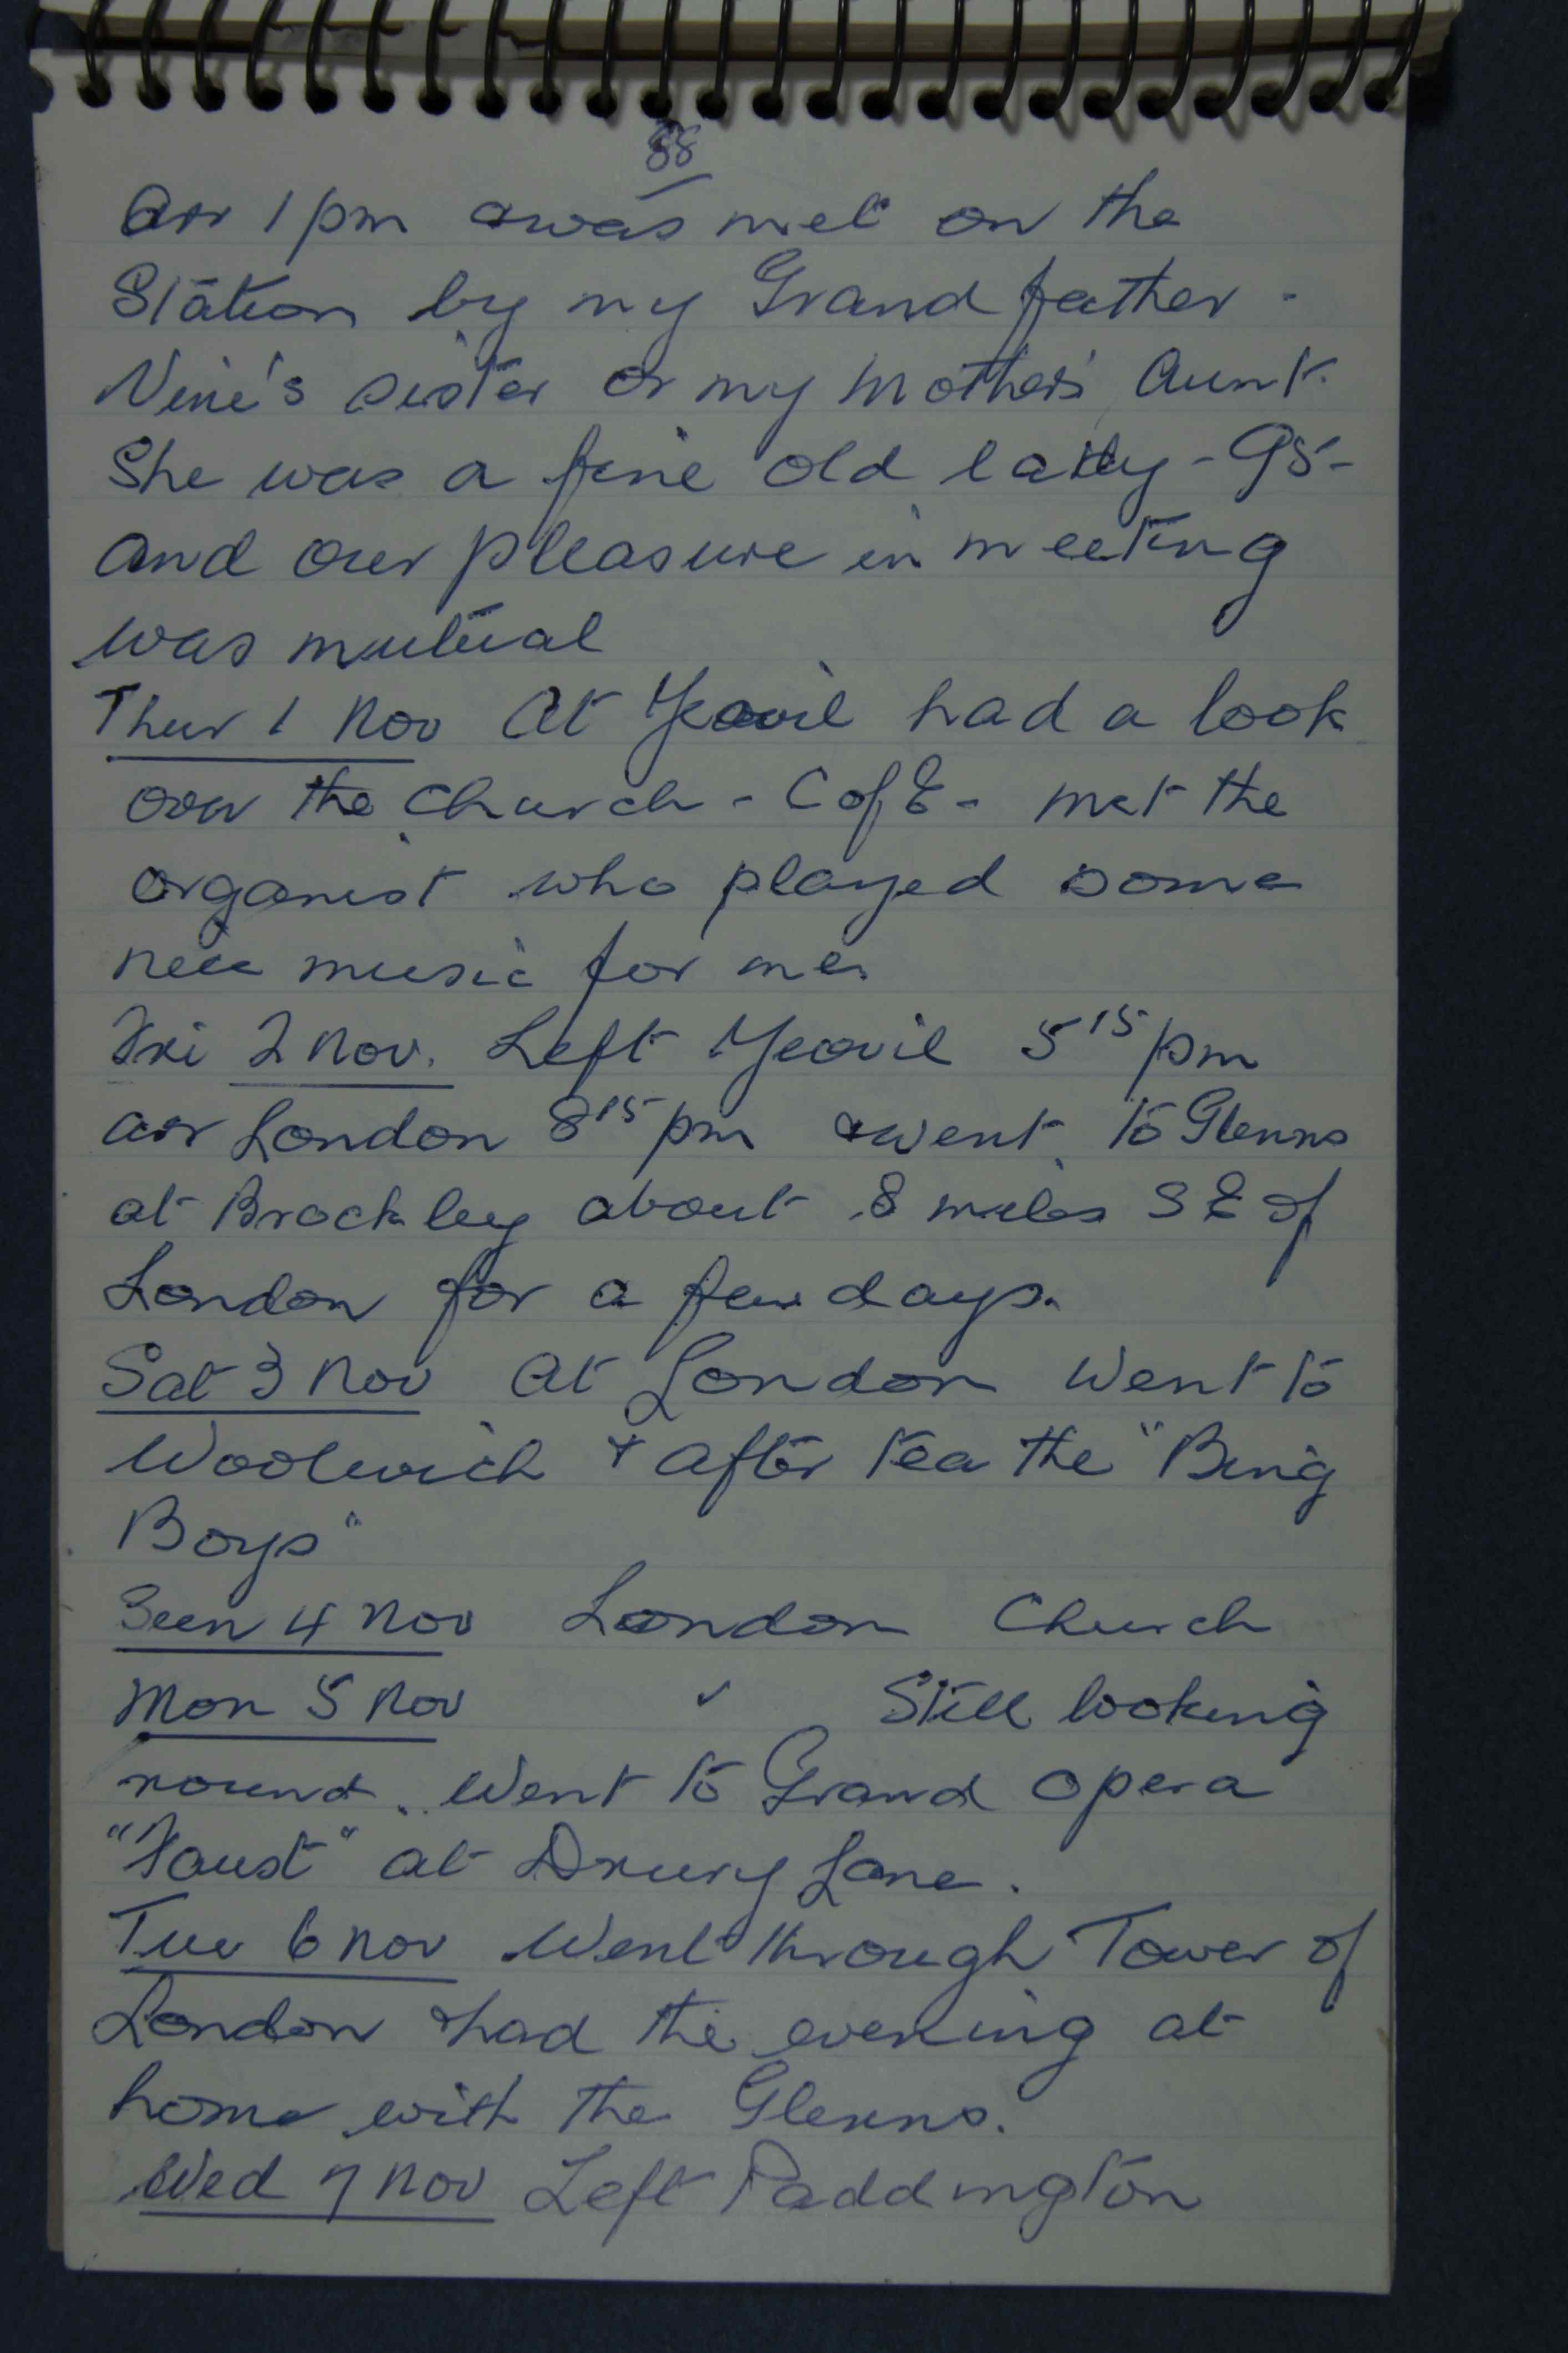 88
Arr 1 pm & was met on the
Station by my Grand father -
Vine's sister or my mothers' Aunt.
She was a fine old lady - 95 -
and our pleasure in meeting
was mutual
Thur 1 Nov At Yeovil had a look
over the church - C of E - met the
organist who played some
nice music for me.
Fri 2 Nov. Left Yeovil 5 15 pm
arr London 8 15 pm & went to Glenns
at Brockley about 8 miles S E of
London for a few days.
Sat 3 Nov At London Went to
Woolwich & after tea the "Bing
Boys"
Sun 4 Nov London Church
Mon 5 Nov " Still looking
round. Went to Grand Opera
"Faust" at Drury Lane.
Tue 6 Nov Went through Tower of
London & had the evening at
home with the Glenns.
Wed 7 Nov Left Paddington